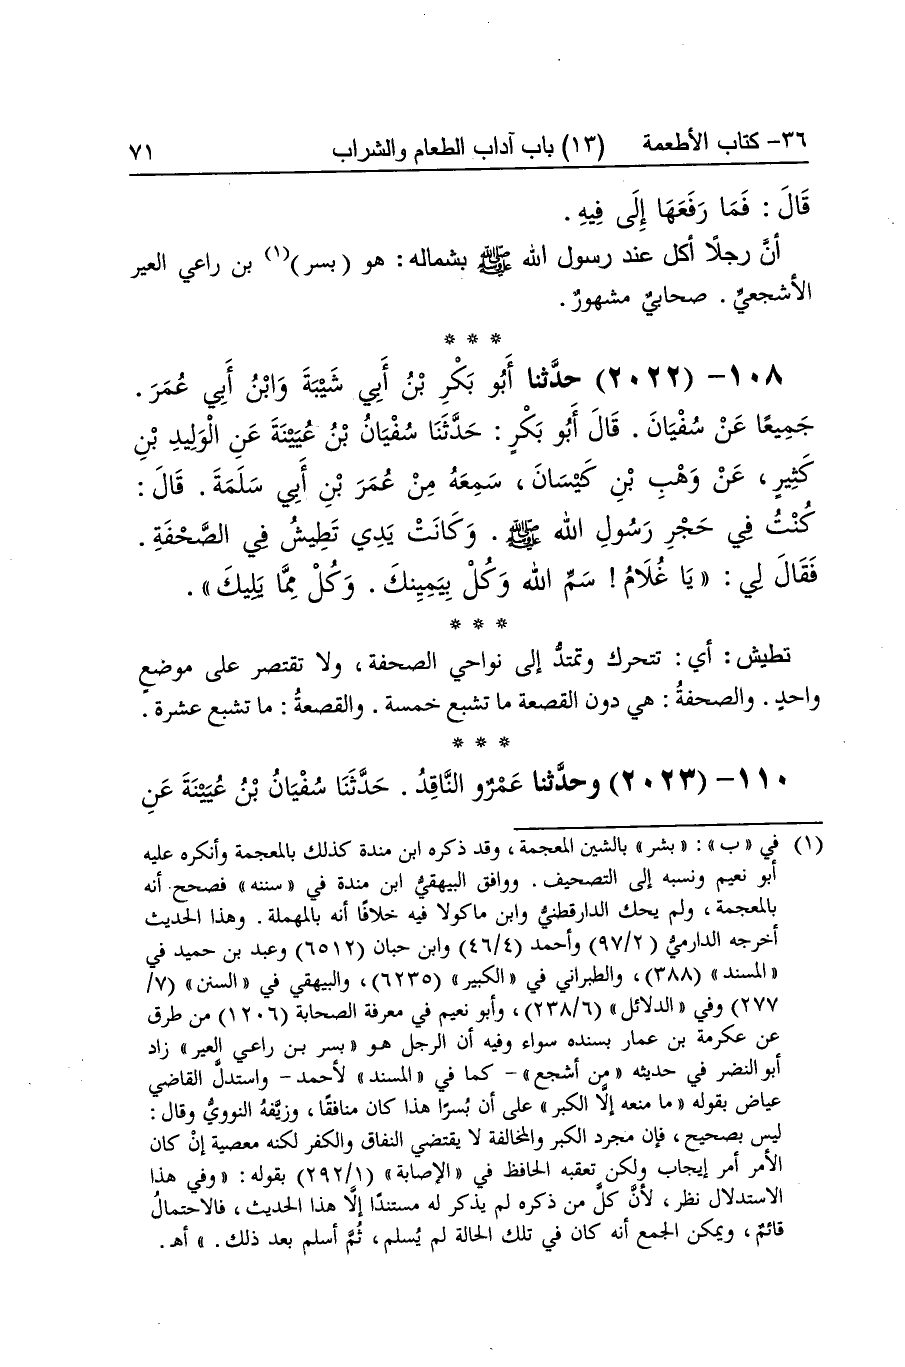 ٣٦- كتاب الأطعمة (١٣) باب آداب الطعام والشراب ٧١
قَالَ : فَمَا رَفَعَهَا إِلَى فِيهِ .
أنَّ رجلًا أكل عند رسول الله ﷺ بشماله : هو ( بسر )(١) بن راعي العير
الأشجعيّ . صحابيٌّ مشهورٌ .
* * *
١٠٨- (٢٠٢٢) حدَّثنا أَبُو بَكْرِ بْنُ أَبِي شَيْبَةَ وَابْنُ أَبِي عُمَرَ .
جَمِيعًا عَنْ سُفْيَانَ . قَالَ أَبُو بَكْرٍ : حَدَّثَنَا سُفْيَانُ بْنُ عُيَيْنَةَ عَنِ الْوَلِيدِ بْنِ
كَثِيرٍ ، عَنْ وَهْبِ بْنِ كَيْسَانَ ، سَمِعَهُ مِنْ عُمَرَ بْنِ أَبِي سَلَمَةَ . قَالَ :
كُنْتُ فِي حَجْرِ رَسُولِ الله ﷺ . وَكَانَتْ يَدِي تَطِيشُ فِي الصَّحْفَةِ .
فَقَالَ لِي : « يَا غُلَامُ ! سَمِّ الله وَكُلْ بِيَمِينِكَ . وَكُلْ مِمَّا يَلِيكَ » .
* * *
تطيش : أي : تتحرك وتمتدُّ إلى نواحي الصحفة ، ولا تقتصر على موضعٍ
واحدٍ . والصحفةُ : هي دون القصعة ما تشبع خمسة . والقصعةُ : ما تشبع عشرة .
* * *
١١٠- (٢٠٢٣) وحدَّثنا عَمْرٌو النَّاقِدُ . حَدَّثَنَا سُفْيَانُ بْنُ عُيَيْنَةَ عَنِ
(١) في « ب » : « بشر » بالشين المعجمة ، وقد ذكره ابن مندة كذلك بالمعجمة وأنكره عليه
أبو نعيم ونسبه إلى التصحيف . ووافق البيهقيُّ ابن مندة في « سننه » فصحح أنه
بالمعجمة ، ولم يحك الدارقطنيُّ وابن ماكولا فيه خلافًا أنه بالمهملة . وهذا الحديث
أخرجه الدارميُّ ( ٩٧/٢) وأحمد (٤٦/٤) وابن حبان (٦٥١٢) وعبد بن حميد في
« المسند » (٣٨٨) ، والطبراني في « الكبير » (٦٢٣٥) ، والبيهقي في « السنن » (٧/
٢٧٧) وفي « الدلائل » (٢٣٨/٦) ، وأبو نعيم في معرفة الصحابة (١٢٠٦) من طرق
عن عكرمة بن عمار بسنده سواء وفيه أن الرجل هو « بسر بن راعي العير » زاد
أبو النضر في حديثه « من أشجع » - كما في « المسند » لأحمد - واستدلَّ القاضي
عياض بقوله « ما منعه إلَّا الكبر » على أن بُسرًا هذا كان منافقًا ، وزيَّفهُ النوويُّ وقال :
ليس بصحيح ، فإن مجرد الكبر والمخالفة لا يقتضي النفاق والكفر لكنه معصية إنْ كان
الأمر أمر إيجاب ولكن تعقبه الحافظ في « الإصابة » (٢٩٢/١) بقوله : « وفي هذا
الاستدلال نظر ، لأنَّ كلَّ من ذكره لم يذكر له مستندًا إلَّا هذا الحديث ، فالاحتمالُ
قائمٌ ، ويمكن الجمع أنه كان في تلك الحالة لم يُسلم ، ثُمَّ أسلم بعد ذلك . » أهـ .